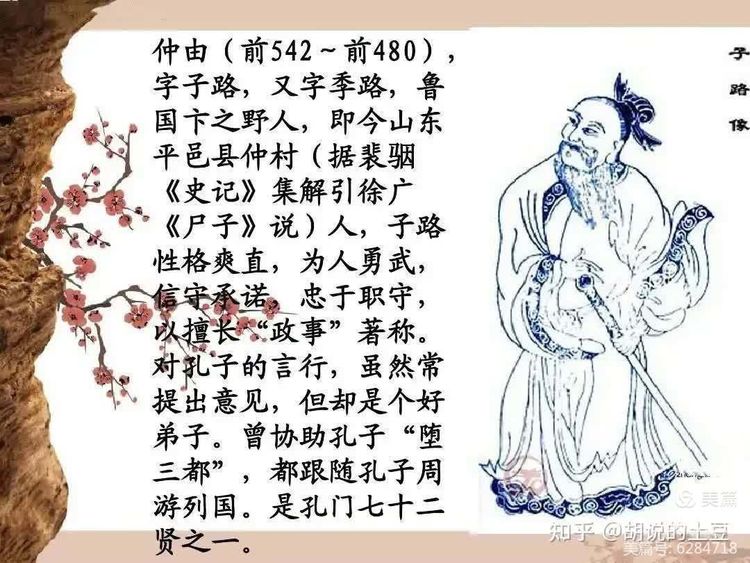 仲由（前542～前480），
字子路，又字季路，鲁
国卞之野人，即今山东
平邑县仲村（据裴骃
《史记》集解引徐广
《尸子》说）人，子路
性格爽直，为人勇武，
信守承诺，忠于职守，
以擅长“政事”著称。
对孔子的言行，虽然常
提出意见，但却是个好
弟子。曾协助孔子“堕
三都”，都跟随孔子周
游列国。是孔门七十二
贤之一。
子路像
美篇
知乎 @胡说的土豆
美篇号: 6284718